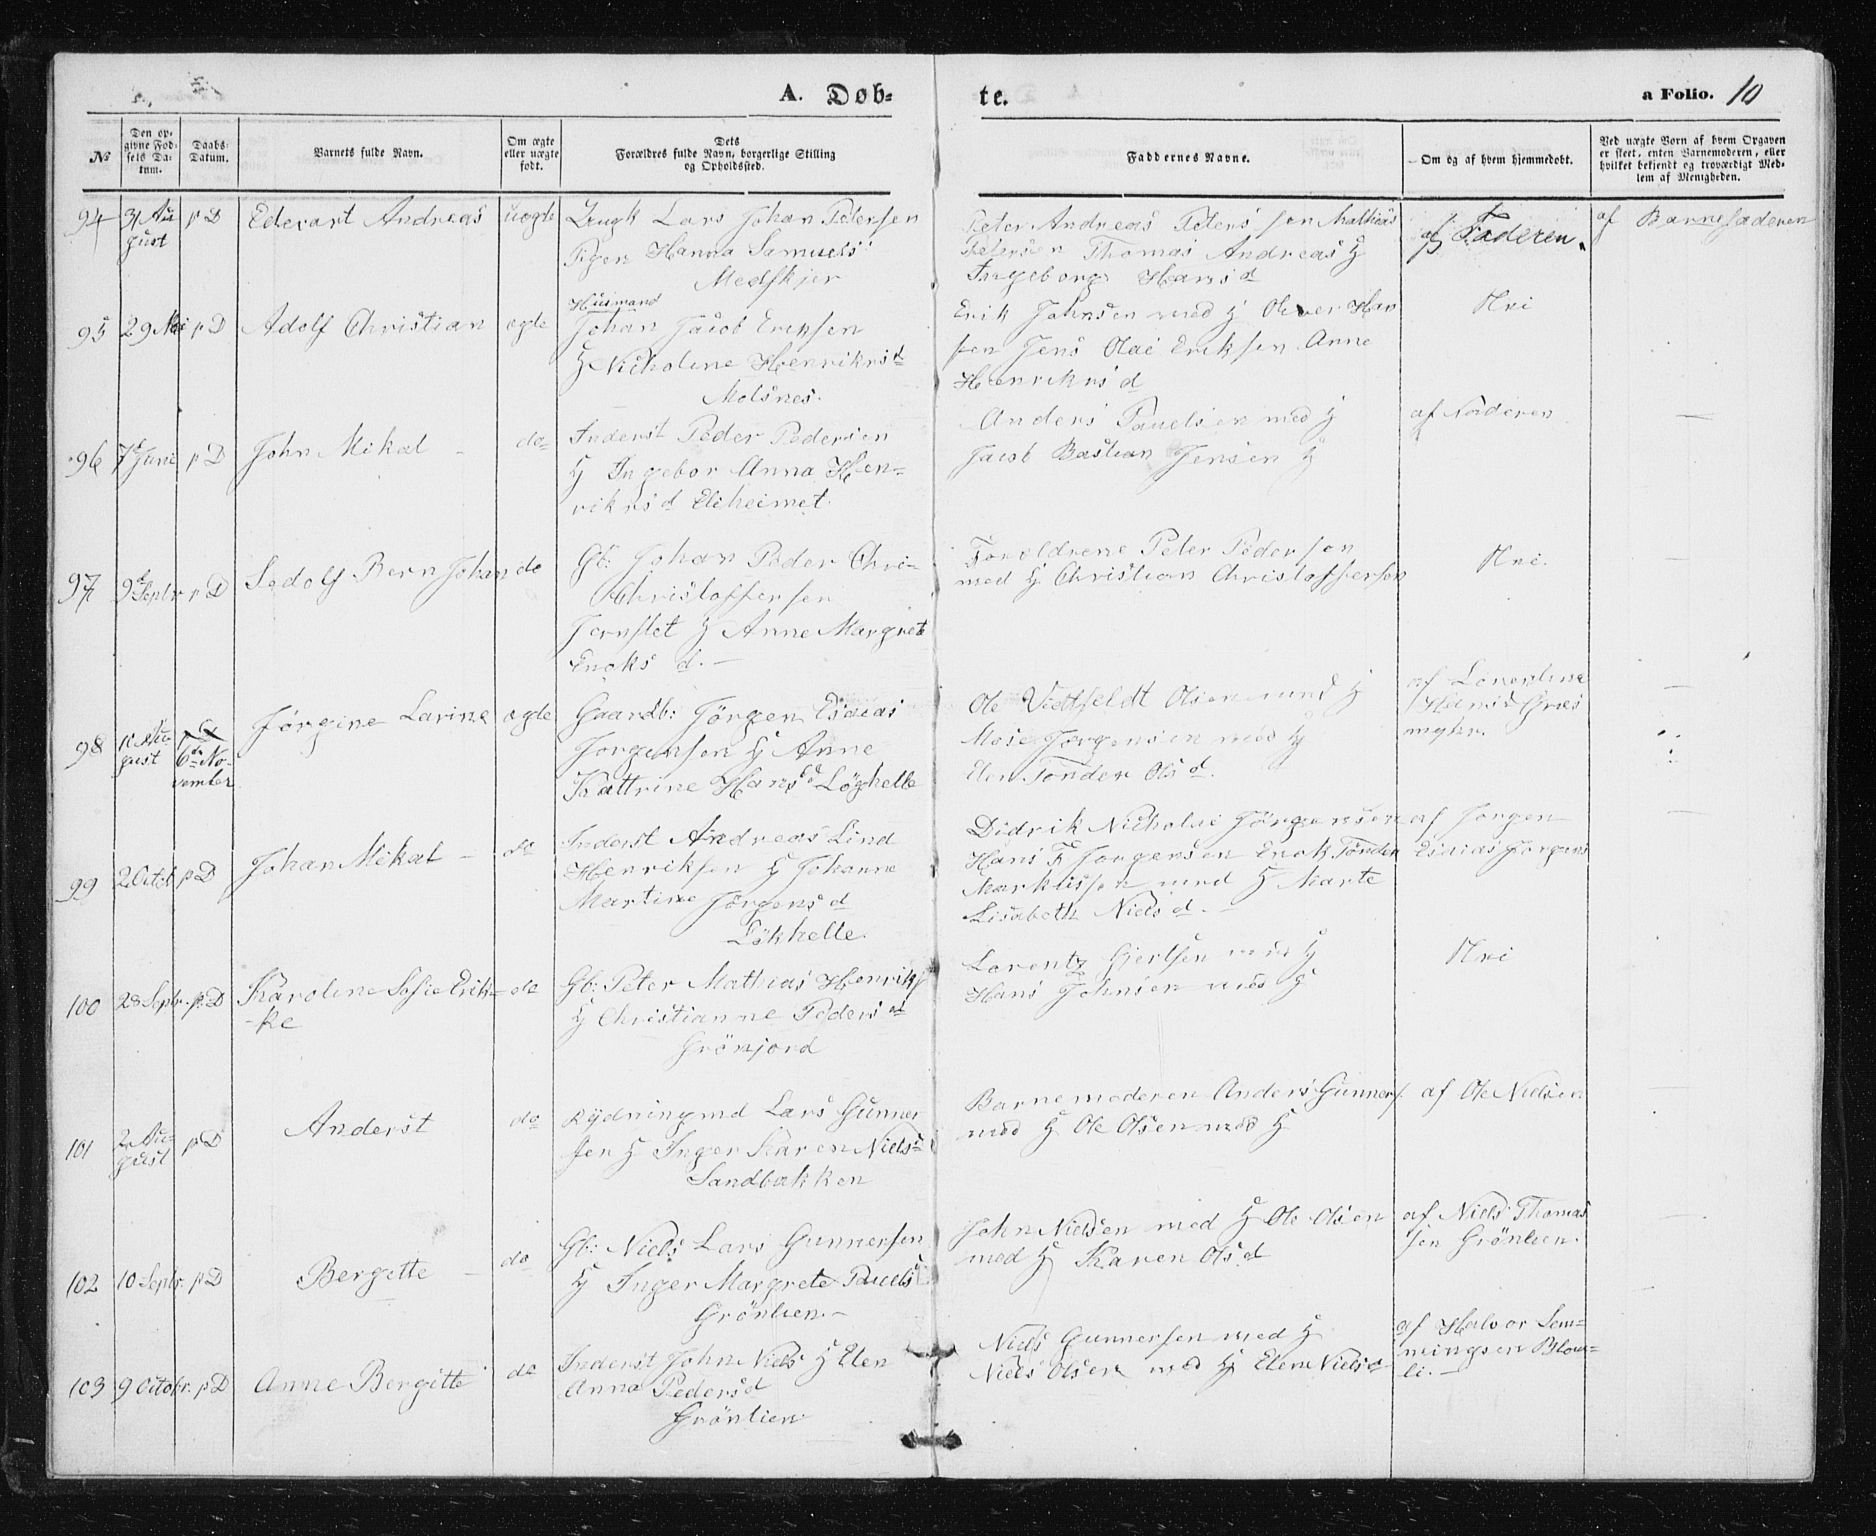 A. Döb-
te.
a Folio. 10
№
Den op-
givne Fød-
sels Da-
tum.
Daabs-
Datum.
Barnets fulde Navn.
Om ægte
eller uægte
født.
Dets
Forældres fulde Navn, borgerlige Stilling
og Opholdssted.
Faddernes Navne.
Om og af hvem hjemmedøbt.
Ved uægte Børn af hvem Opgaven
er skeet, enten Barnemoderen, eller
hvilket bekjendt og troværdigt Med-
lem af Menigheden.
94 31 Au-
gust
p D
Edevart Andreas
uægte
Ungk Lars Johan Petersen
Pigen Hanna Samuels
Medskjer
Peter Andreas Petersen Mathias
Petersen Thomas Andreas H
Ingeborg Hansd
af Faderen.
af Barnefaderen
95 29 Mai p D
Adolf Christian
ægte
Husmand
Johan Jacob Eriksen
H Nicholine Henriksd
Molsnes.
Erik Johnsen med H Oliver Han
sen Jens Olai Eriksen Anne
Henriksd
Nei
96 7d Juni p D
John Mikal
do
Inderst Peder Pedersen
H Ingebor Anna Hen-
riksd Eliheimet.
Anders Pauelsen med H
Jacob Bastian Jensen H
af Faderen
97 9d Septbr p D
Sedolf Bern Johan
do
Gb: Johan Peder Chri-
Christoffersen
H Anne Margret
Enoks d.
Forældrene Peter Pedersen
med H Christian Christoffersen
Nei.
98 Au-
gust
6te No-
vember
Jørgine Larine
ægte
Gaardb: Jörgen Esaias
Jorgensen H Anne
Kattrine Hansd Löghelle
Ole Vedtfeldt Olsen med H
Mose Jørgensen med H
Elen Tönder Olsd.
af
Hansd Græs
myhr.
99 2 Octob p D
Johan Mikal
do
Inderst Andreas Lind
Henriksen H Johanne
Martine Jörgensd
Lökhelle.
Didrik Nicholai Jörgensen
Hans F Jorgensen Enok Tönder
Markussen med H Marte
Lisabeth Nielsd.
af Jorgen
Esaias Jorgens
100 28 Septr. p D
Karoline Sofie Erik-
-ke
do
Gb: Peter Mathias Henriks
H Christianne Pedersd
Grönjord
Lorentz Gjertsen med H
Hans Johnsen med H
Nei
101 2 Au-
gust
p D
Anderst
do
Rydningmd Lars Gunner
sen H Inger Karen Niels
Sandbakken
Barnemoderen Anders Gunners.
med H Ole Olsen med H
af Ole Nielsen
102 10 Septr. p D
Bergitte
do
Gb: Niels Lars Gunnersen
H Inger Margrete Pauels
Grönlien.
John Nielsen med H Ole Olsen
med H Karen Olsd
af Niels Thomas
sen Grönlien.
103 9 Octobr. p D
Anne Bergitte
do
Inderst John Niels H Elen
Anna Pedersd
Grönlien
Niels Gunnersen med H
Niels Olsen med H Elen Nielsd
af Halvor Sem-
mingsen Blom-
li.